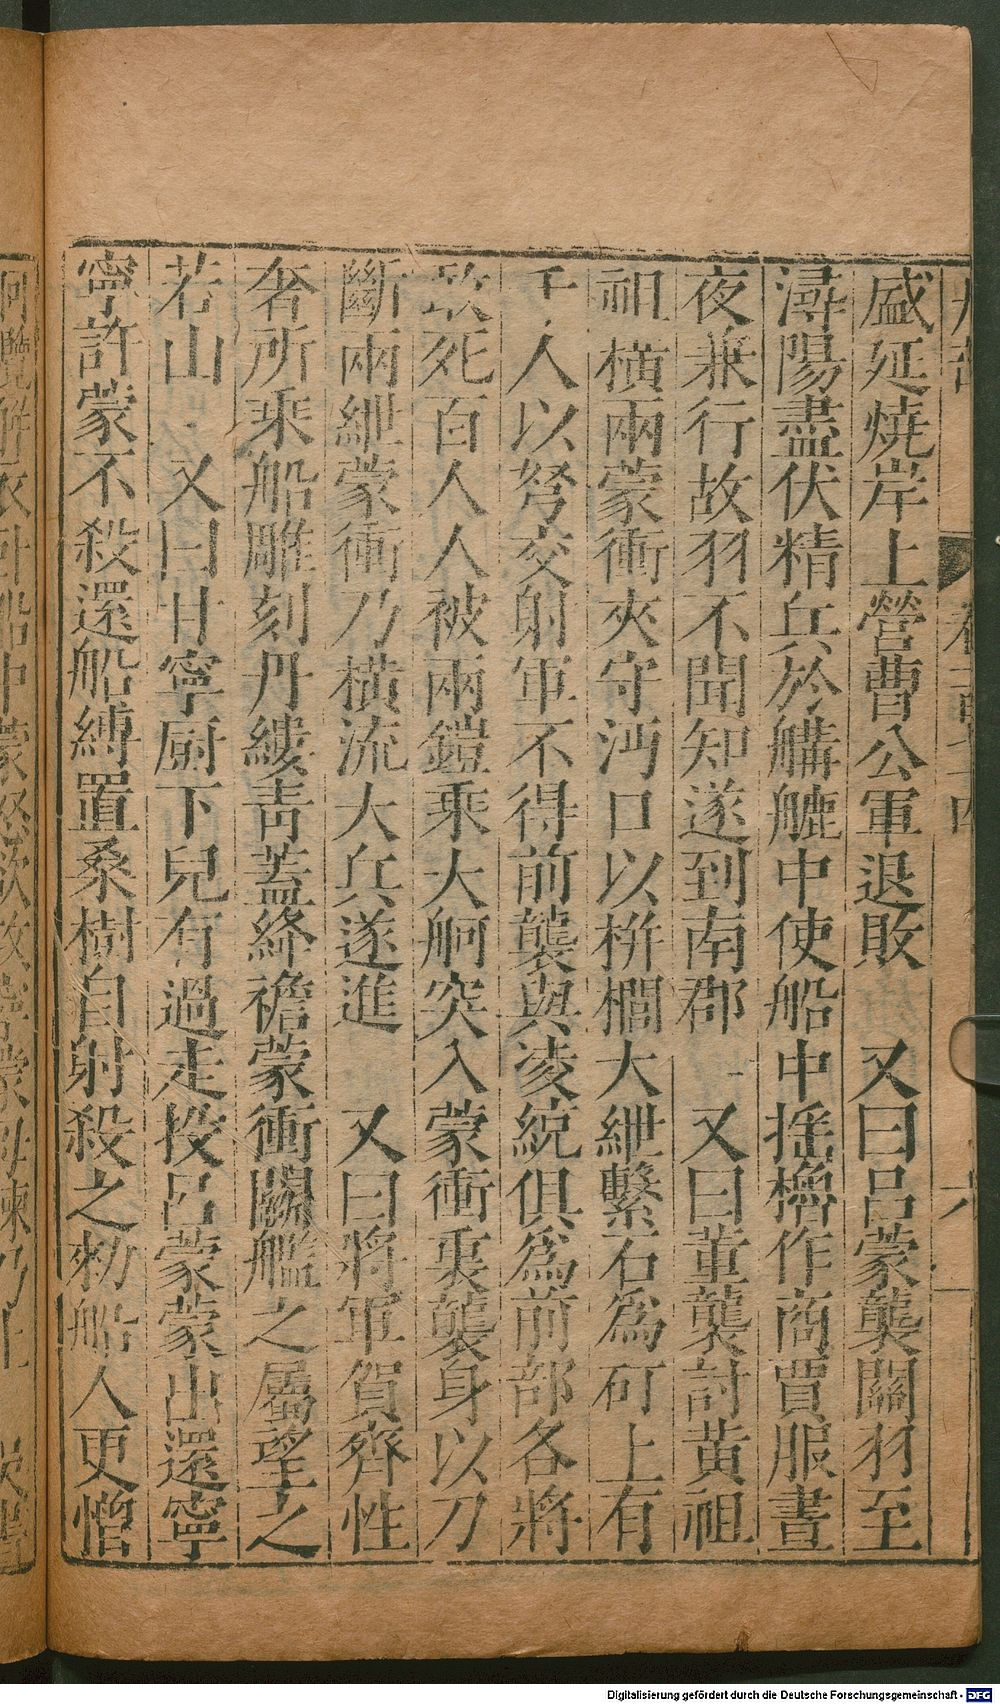 盛延燒岸上營曹公軍退敗　又曰呂蒙襲關羽至
潯陽盡伏精兵於䑦䑽中使船中搖櫓作商賈服晝
夜兼行故羽不聞知遂到南郡　又曰董襲討黃祖
祖橫兩蒙衝夾守沔口以栟櫚大紲繫石爲矴上有
千人以弩交射軍不得前襲與凌統俱爲前部各將
敢死百人人被兩鎧乘大舸突入蒙衝裏襲身以刀
斷兩紲蒙衝乃橫流大兵遂進　又曰將軍賀齊性
奢所乘船雕刻丹縷靑蓋絳襜蒙衝鬭艦之屬望之
若山　又曰甘寧厨下兒有過走投呂蒙蒙出還寧
寧許蒙不殺還船縛置桑樹自射殺之勑船人更增
Digitalisierung gefördert durch die Deutsche Forschungsgemeinschaft - DFG